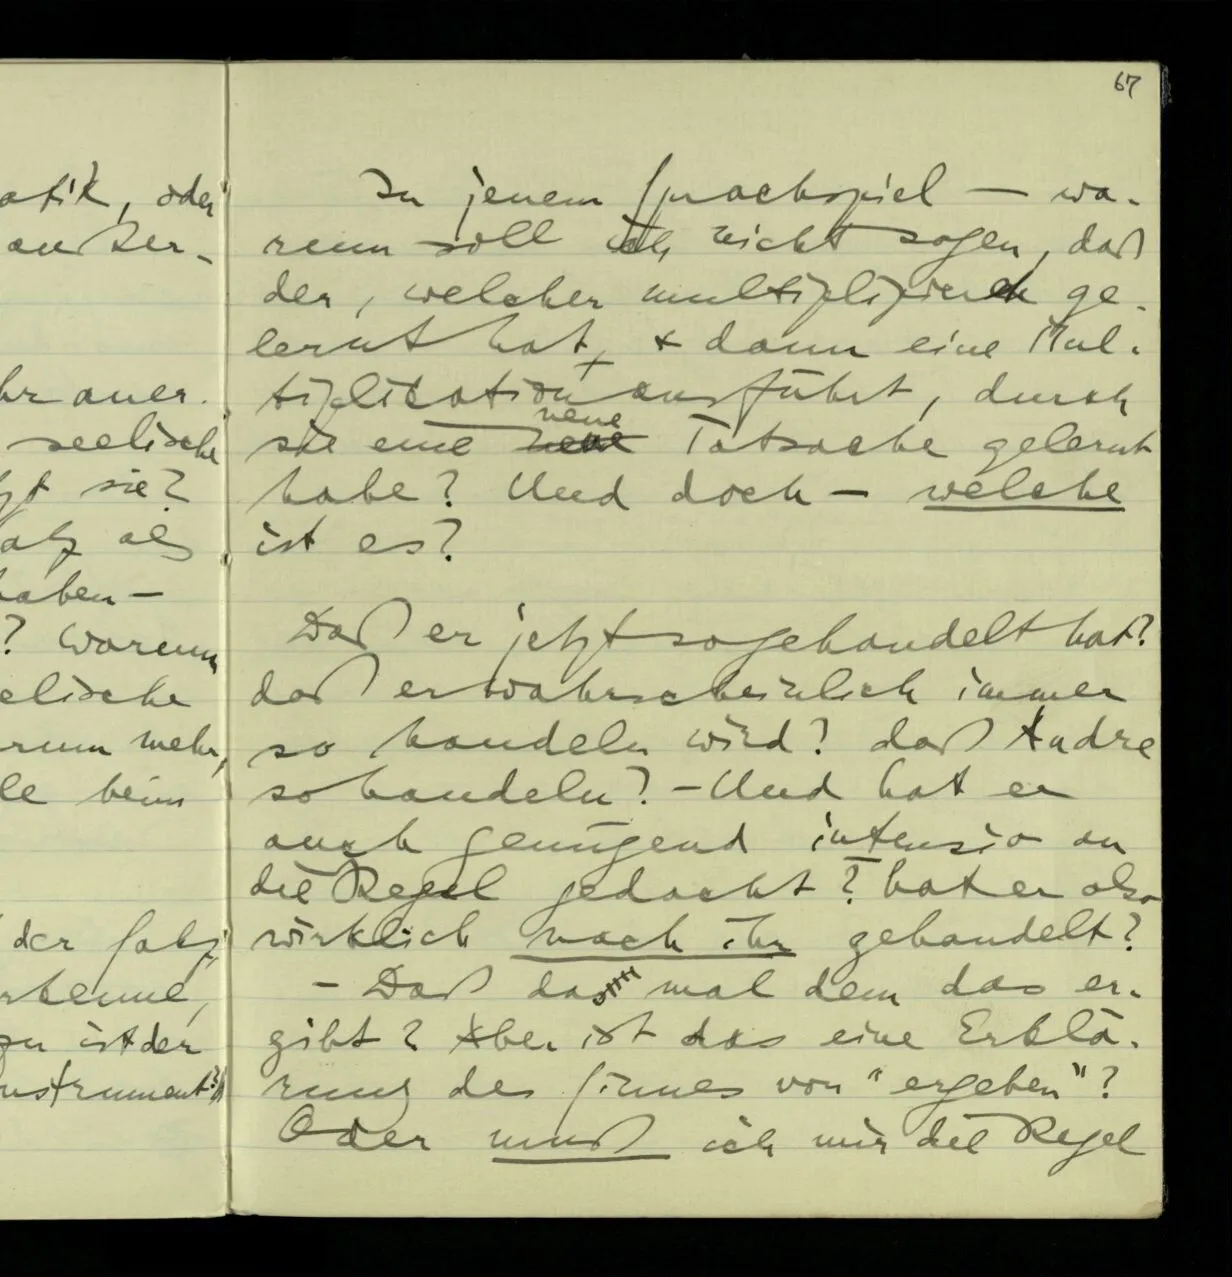 67
atik, oder
außer-
hr aner-
seelische
gt sie?
atz als
haben –
? Warum
elische
rum mehr,
le beim
der Satz
rkenne,
zu ist der
nstrument?
In jenem Sprachspiel — wa-
rum soll ich nicht sagen, daß
der, welcher multiplizieren ge-
lernt hat, + dann eine Mul-
tiplication ausführt, durch
sie eine neue Tatsache gelernt
habe? Und doch – welche
ist es?
Daß er jetzt so gehandelt hat?
daß er wahrscheinlich immer
so handeln wird? daß Andre
so handeln? – Und hat er
auch genügend intensiv an
die Regel gedacht? hat er also
wirklich nach ihr gehandelt?
– Daß das mal dem das er-
gibt? Aber ist das eine Erklä-
rung des Sinnes von "ergeben"?
Oder muß ich mir die Regel